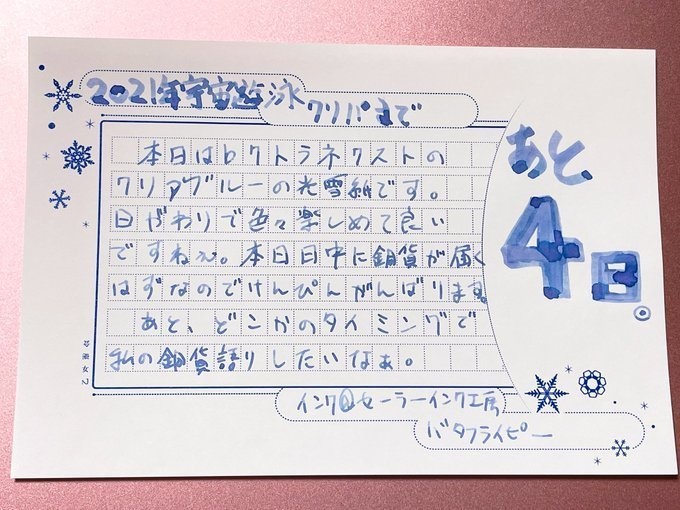 2021年宇宙遊泳
クリパまで
あと
4日。
本日はbクトラネクストの
クリアブルーの光雪紙です。
日がわりで色々楽しめて良い
ですねぇ。本日日中に銅貨が届く
はずなのでけんぴんがんばります。
あと、どこかのタイミングで
私の銅貨語りしたいなぁ。
インク@セーラーインク工房
バタフライピー